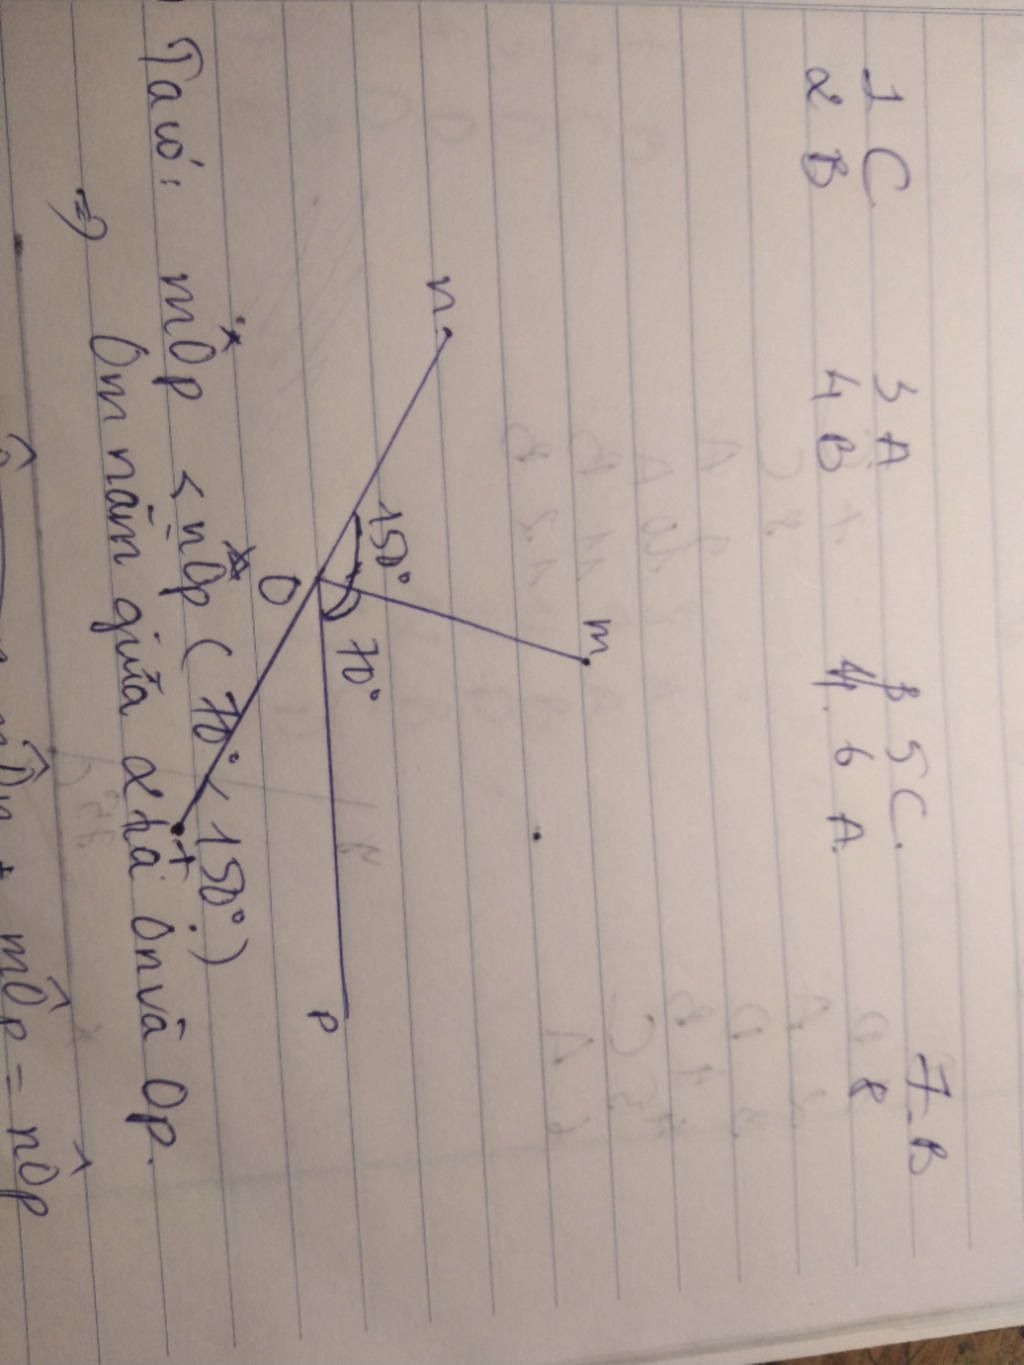 1 C 3 A 5 C. 7.B
2 B 4 B 6 A. 8
n
m
150°
70°
O
p
t
Ta có: mÔp < nÔp (70° < 150°)
=> Om nằm giữa 2 tia On và Op.
mÔp = nÔp